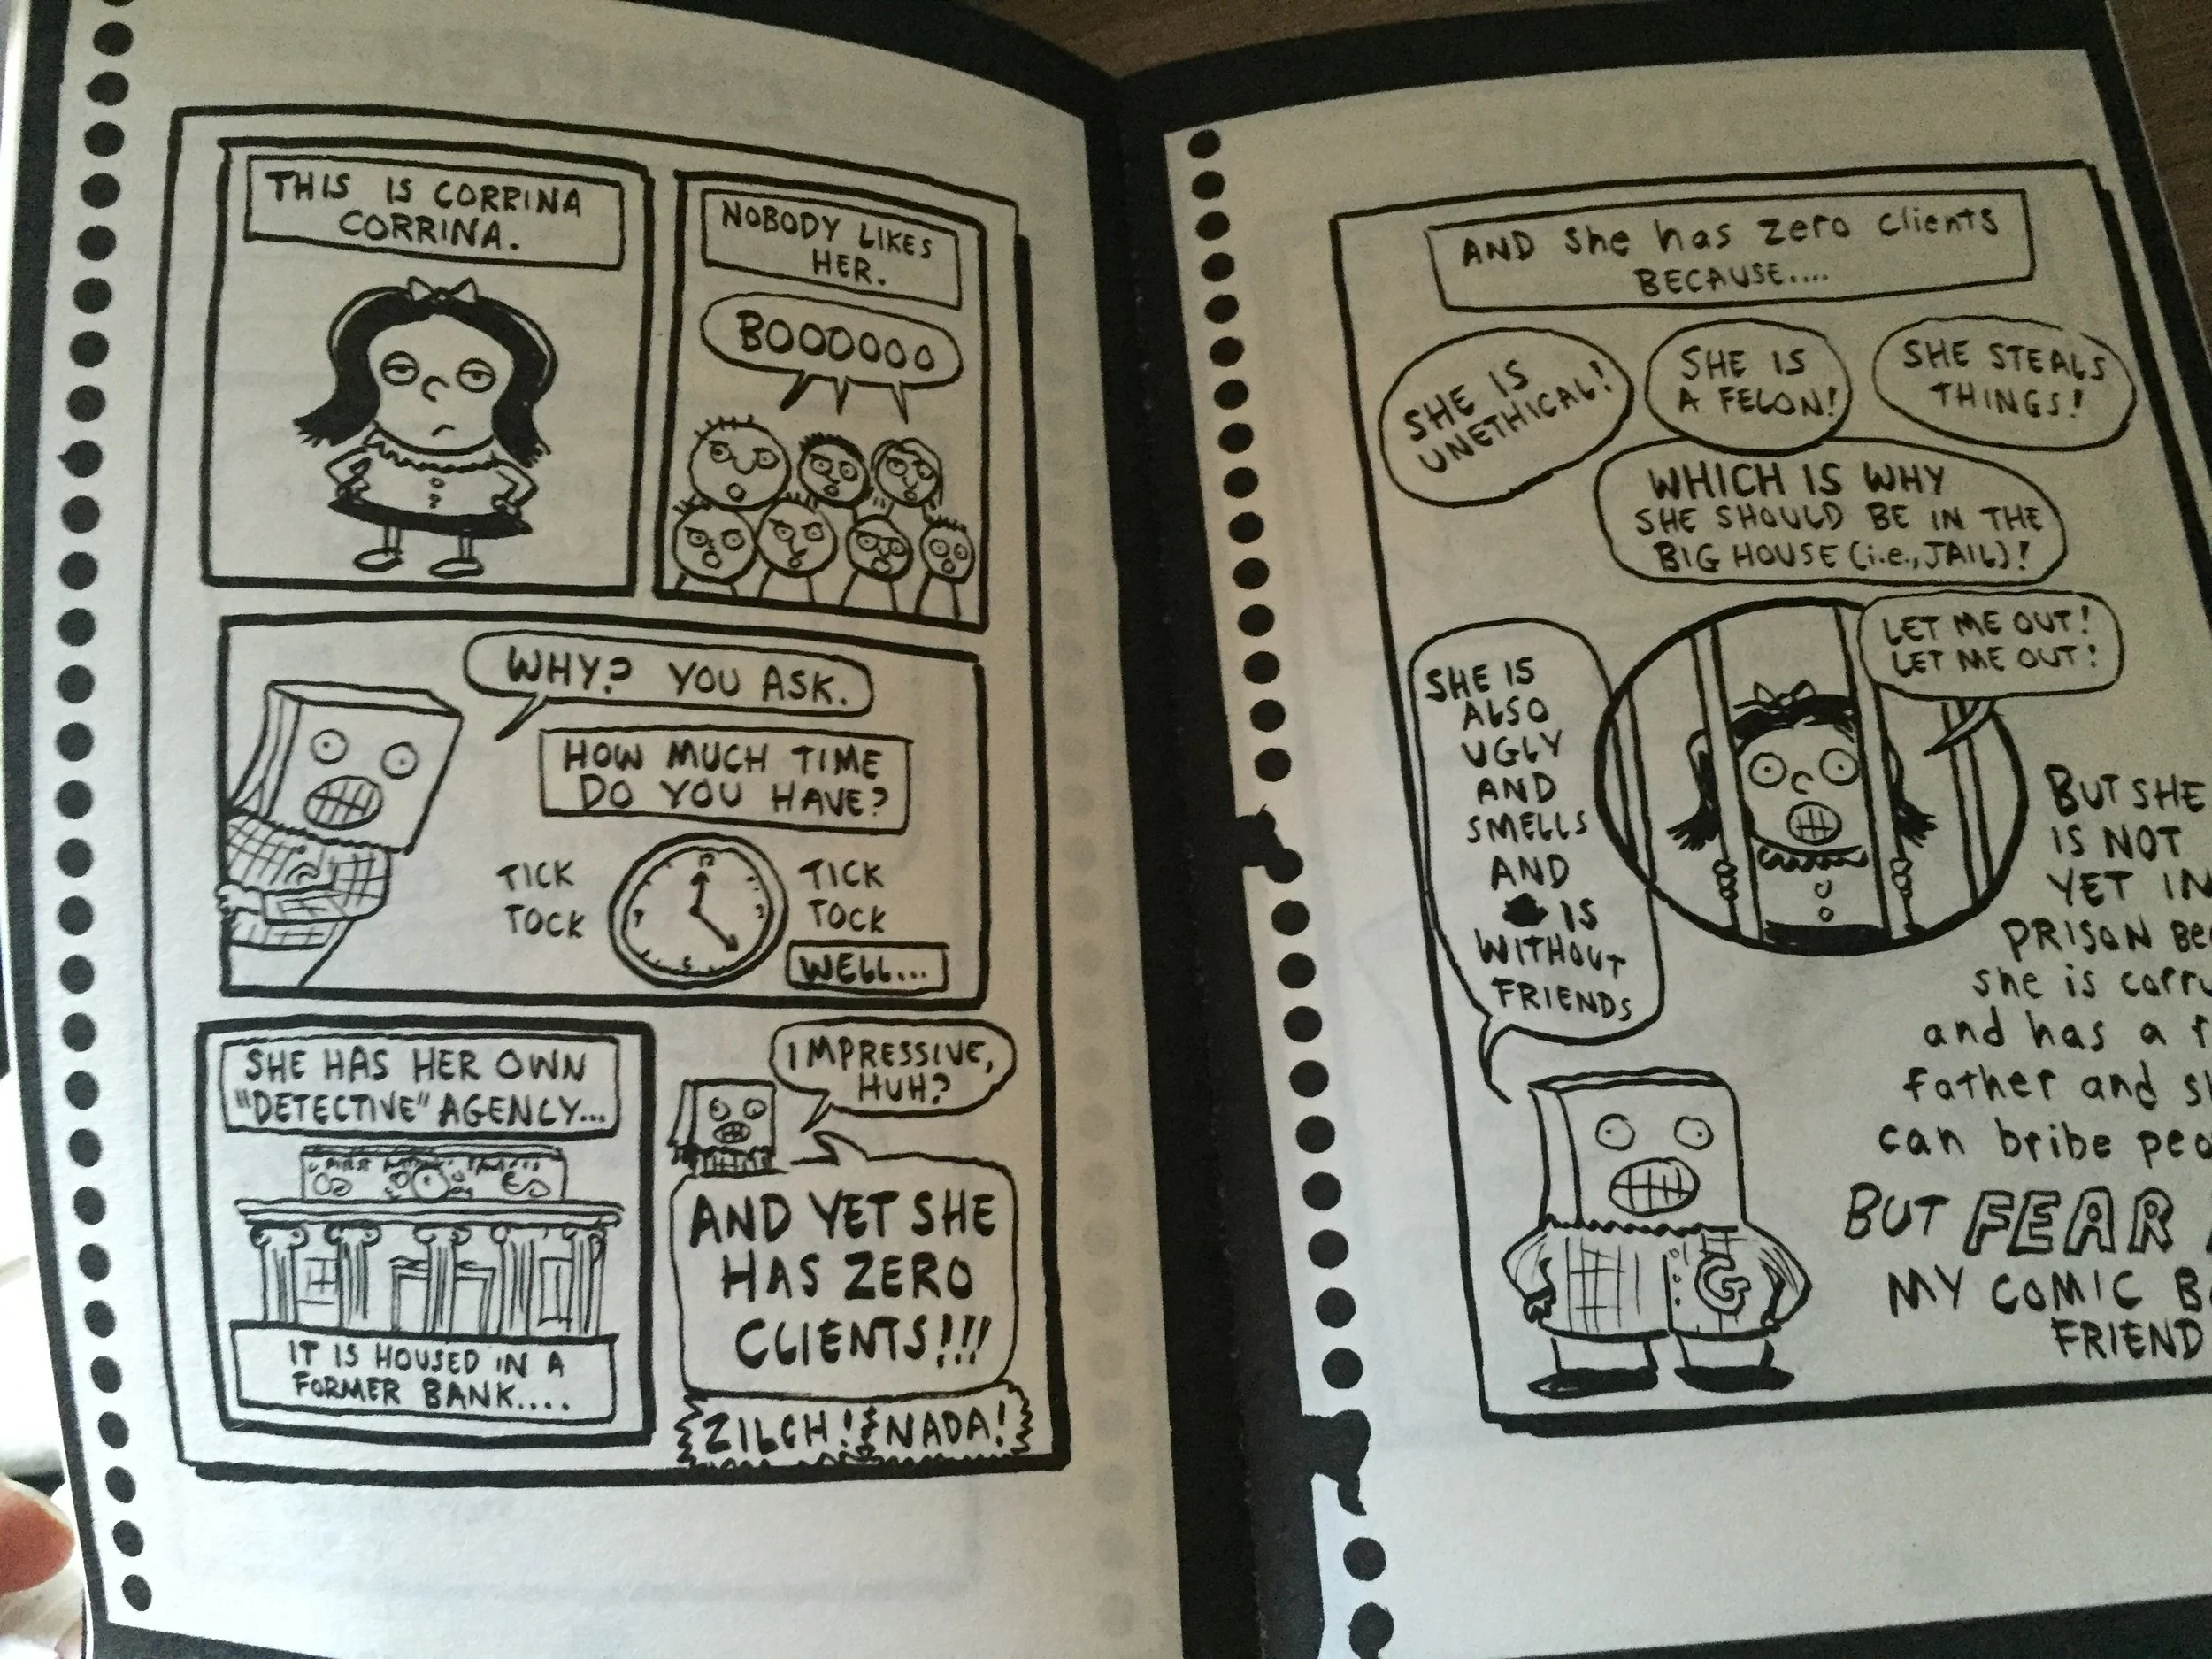 THIS IS CORRINA
CORRINA.
NOBODY LIKES
HER.
BOOOOOO
WHY? YOU ASK.
HOW MUCH TIME
DO YOU HAVE?
TICK
TOCK
TICK
TOCK
WELL...
SHE HAS HER OWN
"DETECTIVE" AGENCY...
IT IS HOUSED IN A
FORMER BANK....
IMPRESSIVE,
HUH?
AND YET SHE
HAS ZERO
CLIENTS!!!
ZILCH! NADA!
AND She has zero clients
BECAUSE....
SHE IS
UNETHICAL!
SHE IS
A FELON!
SHE STEALS
THINGS!
WHICH IS WHY
SHE SHOULD BE IN THE
BIG HOUSE (i.e., JAIL)!
LET ME OUT!
LET ME OUT!
SHE IS
ALSO
UGLY
AND
SMELLS
AND
IS
WITHOUT
FRIENDS
BUT SHE
IS NOT
YET IN
PRISON
she is
and has a
father and
can bribe
BUT FEAR
MY COMIC
FRIEND
G